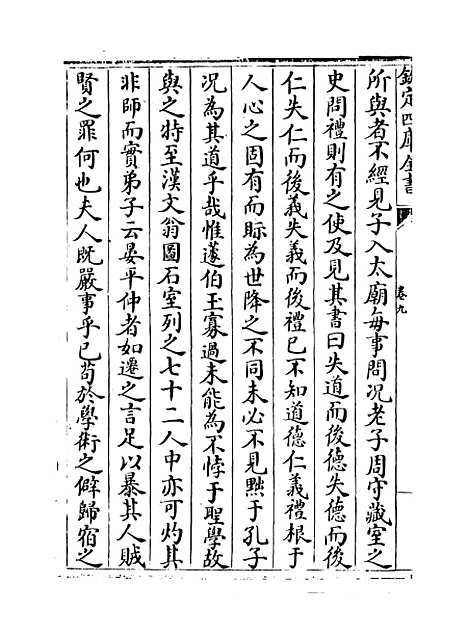 欽定四庫全書
卷九
所與者不經見子入太廟每事問況老子周守藏室之
史問禮則有之使及見其書曰失道而後德失德而後
仁失仁而後義失義而後禮已不知道德仁義禮根于
人心之固有而眎為世降之不同未必不見黜于孔子
况為其道乎哉惟蘧伯玉寡過未能為不悖于聖學故
與之特至漢文翁圖石室列之七十二人中亦可灼其
非師而實弟子云晏平仲者如遷之言足以暴其人賊
賢之罪何也夫人既嚴事乎已苟於學術之僻歸宿之